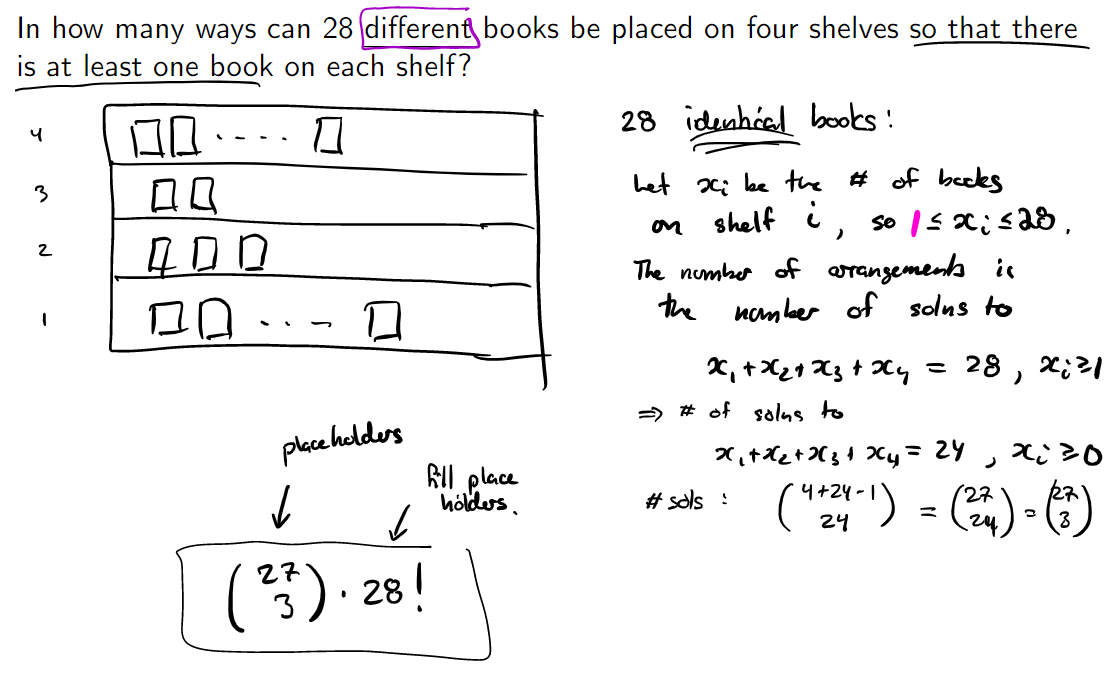 In how many ways can 28 different books be placed on four shelves so that there
is at least one book on each shelf?
4
3
2
1
28 identical books:
Let xᵢ be the # of books
on shelf i, so 1 ≤ xᵢ ≤ 28.
The number of arrangements is
the number of solns to
x₁+x₂+x₃+x₄ = 28, xᵢ≥1
⇒ # of solns to
x₁+x₂+x₃+x₄ = 24, xᵢ≥0
# sols : (4+24-1 24) = (27 24) = (27 3)
placeholders
fill place
holders.
(27 3) · 28!